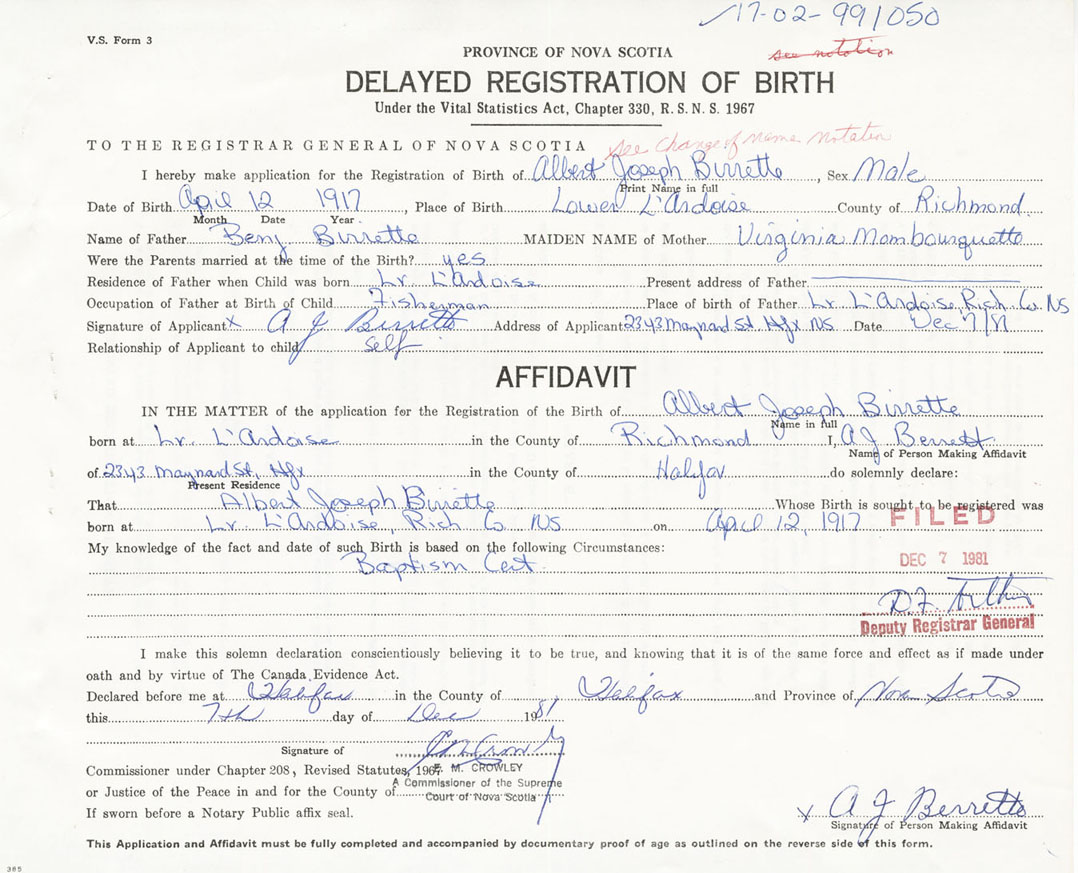 17-02-991050
V.S. Form 3
see notation
PROVINCE OF NOVA SCOTIA
DELAYED REGISTRATION OF BIRTH
Under the Vital Statistics Act, Chapter 330, R. S. N. S. 1967
see Change of name notation
TO THE REGISTRAR GENERAL OF NOVA SCOTIA
I hereby make application for the Registration of Birth of Albert Joseph Birrette, Sex Male
Print Name in full
Date of Birth April 12 1917, Place of Birth Lower L'Ardoise County of Richmond
Month Date Year
Name of Father Beny Birrette MAIDEN NAME of Mother Virginia Mombourquette
Were the Parents married at the time of the Birth? yes
Residence of Father when Child was born Lr. L'Ardoise Present address of Father
Occupation of Father at Birth of Child Fisherman Place of birth of Father Lr. L'Ardoise, Rich Co. NS
Signature of Applicant X A J Berrette Address of Applicant 2343 Maynard St. Hfx NS Date Dec 7/81
Relationship of Applicant to child self
AFFIDAVIT
IN THE MATTER of the application for the Registration of the Birth of Albert Joseph Birrette
Name in full
born at Lr. L'Ardoise in the County of Richmond I, A J Berrett
Name of Person Making Affidavit
of 2343 Maynard St, Hfx in the County of Halifax do solemnly declare:
Present Residence
That Albert Joseph Birrette Whose Birth is sought to be registered was
born at Lr. L'Ardoise, Rich Co NS on April 12, 1917
FILED
My knowledge of the fact and date of such Birth is based on the following Circumstances:
Baptism Cert.
DEC 7 1981
D.F.
Deputy Registrar General
I make this solemn declaration conscientiously believing it to be true, and knowing that it is of the same force and effect as if made under
oath and by virtue of The Canada Evidence Act.
Declared before me at Halifax in the County of Halifax and Province of Nova Scotia
this 7th day of Dec 1981
Signature of
Commissioner under Chapter 208, Revised Statutes, 1967 M. CROWLEY
A Commissioner of the Supreme
or Justice of the Peace in and for the County of Court of Nova Scotia
If sworn before a Notary Public affix seal.
X A J Berrette
Signature of Person Making Affidavit
This Application and Affidavit must be fully completed and accompanied by documentary proof of age as outlined on the reverse side of this form.
385